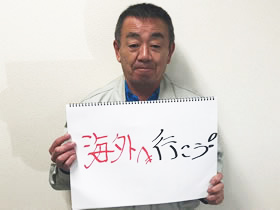 海外へ行こう。